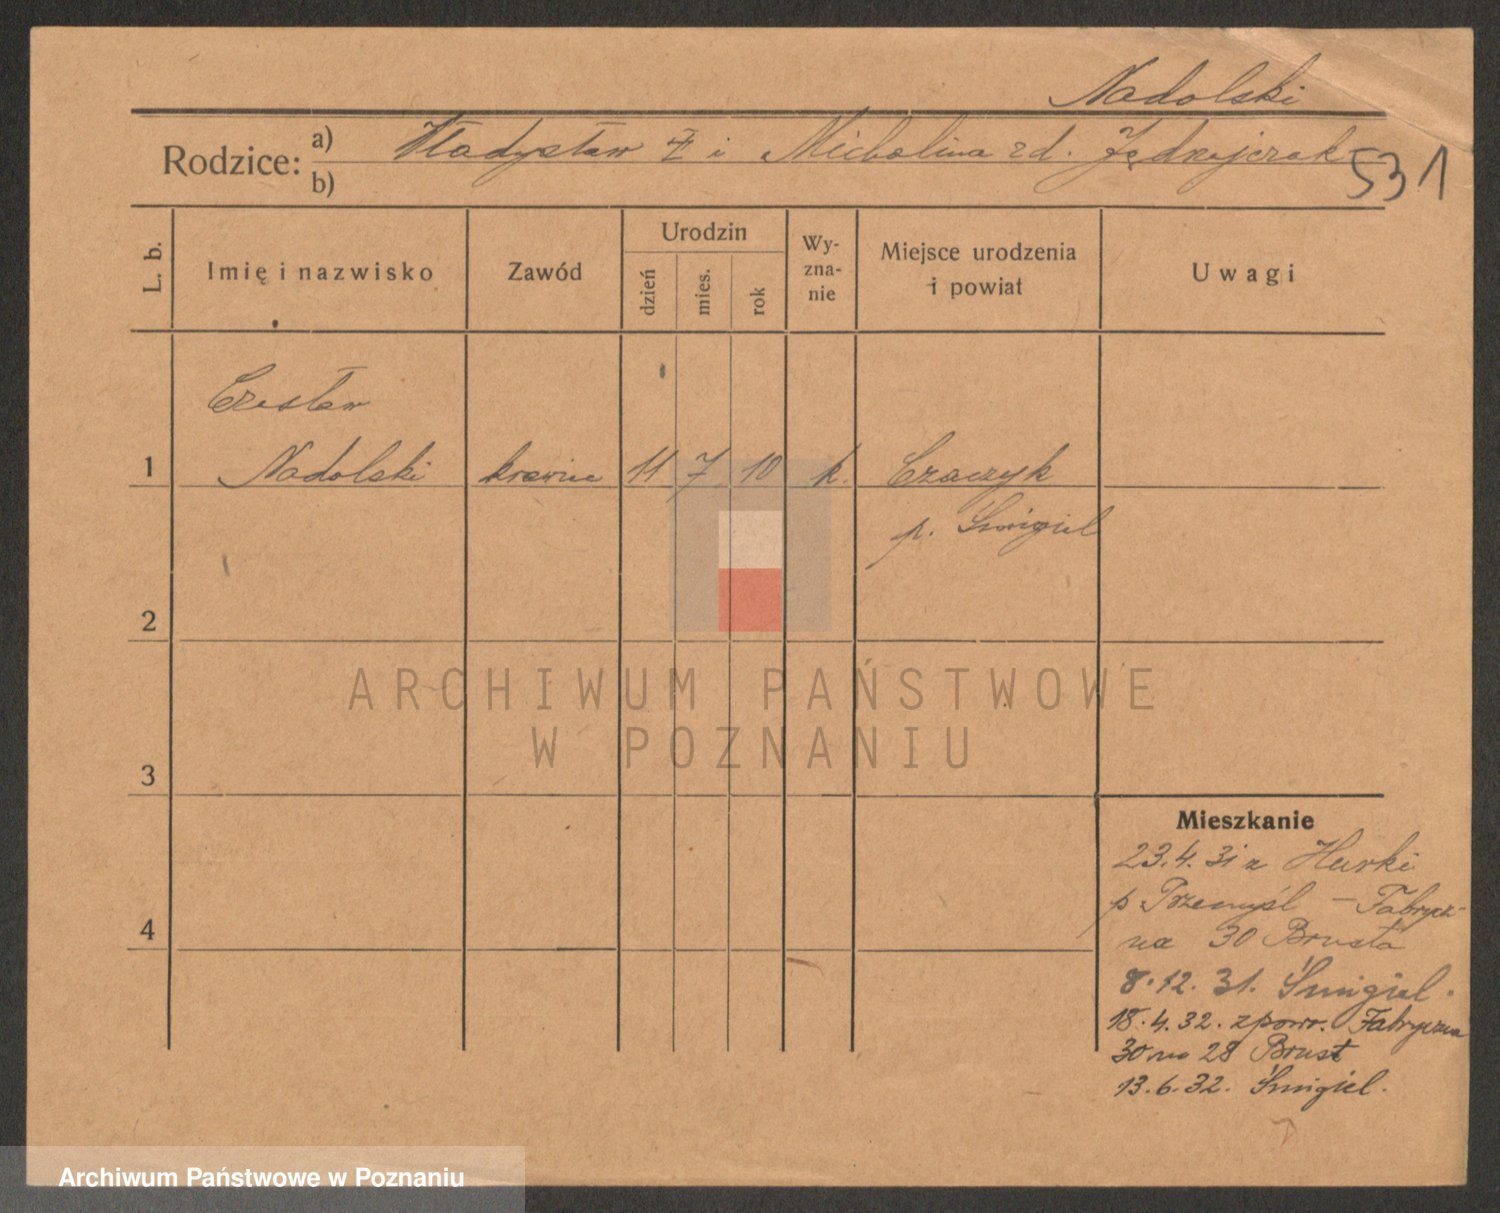 Nadolski
Rodzice: a) Władysław i Michalina zd. Jędrzejczak
b)
531
L. b. Imię i nazwisko Zawód Urodzin dzień mies. rok Wyzna-nie Miejsce urodzenia i powiat Uwagi
Czesław
1 Nadolski krawiec 11 7 10 k. Czaczyk
p. Śmigiel
2
ARCHIWUM PAŃSTWOWE
W POZNANIU
3
Mieszkanie
23.4.31 z Hurki
p Przemyśl – Fabrycz-
4
na 30 Brusta
8.12.31. Śmigiel.
18.4.32. zpow. Fabryczna
30 na 28 Brust
13.6.32. Śmigiel.
Archiwum Państwowe w Poznaniu